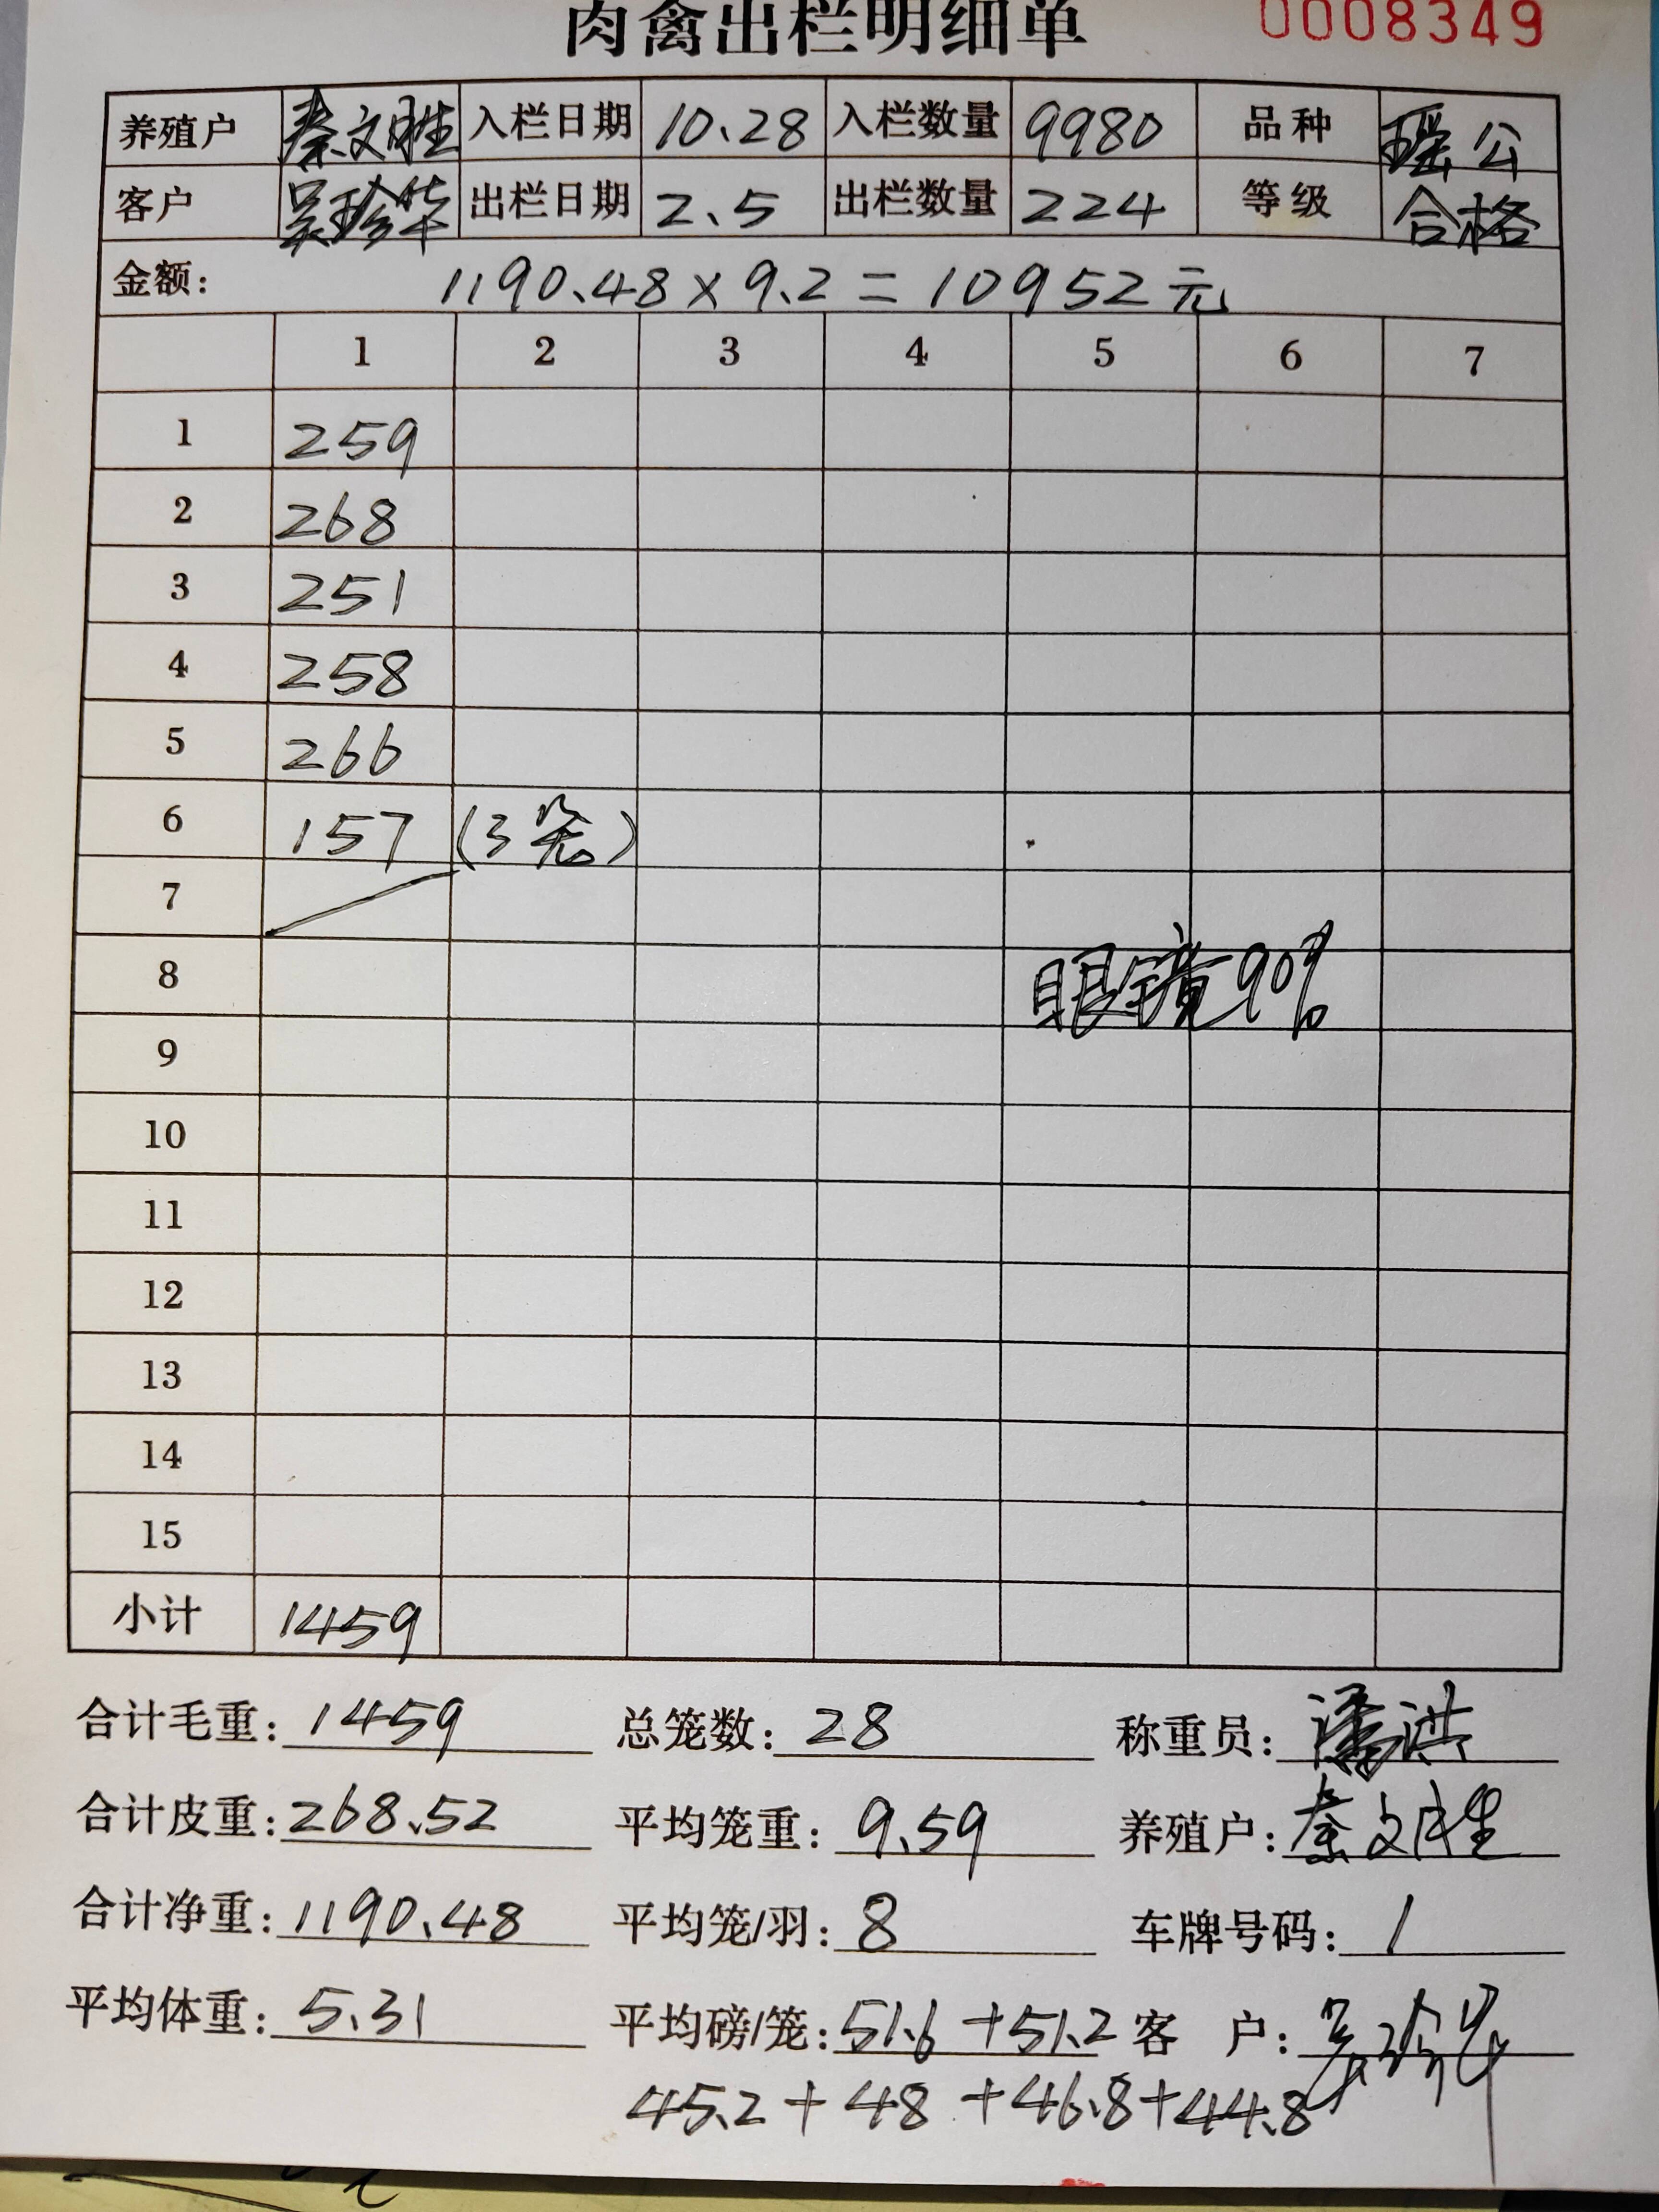 肉禽出栏明细单 0008349
养殖户 秦文胜 入栏日期 10.28 入栏数量 9980 品种 瑶公
客户 吴珍华 出栏日期 2.5 出栏数量 224 等级 合格
金额: 1190.48×9.2=10952元
1 2 3 4 5 6 7
1 259
2 268
3 251
4 258
5 266
6 157 (3笼)
7
8 眼镜90%
9
10
11
12
13
14
15
小计 1459
合计毛重: 1459 总笼数: 28 称重员: 潘洪
合计皮重: 268.52 平均笼重: 9.59 养殖户: 秦文胜
合计净重: 1190.48 平均笼/羽: 8 车牌号码: 1
平均体重: 5.31 平均磅/笼: 51.6+51.2 客 户: 吴珍华
45.2+48+46.8+44.8